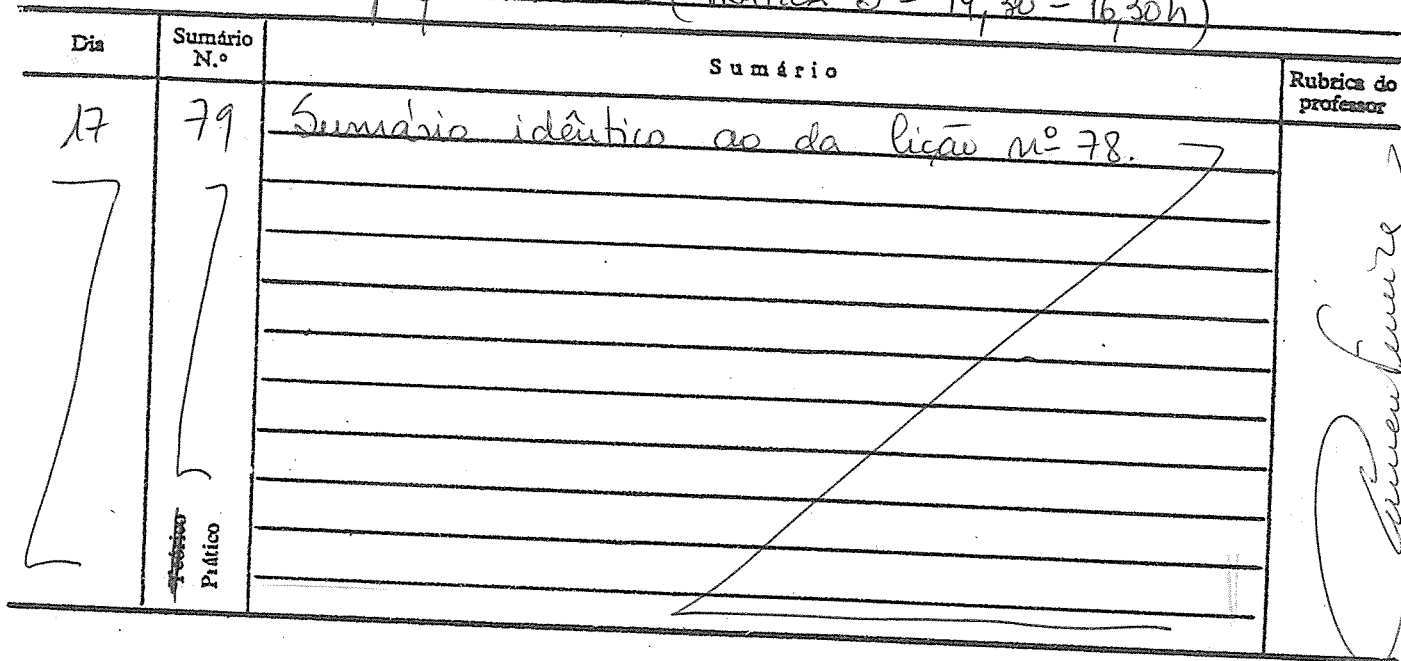 - 16,30h)
Dia
Sumário N.º
Sumário
Rubrica do professor
17
79
Sumário idêntico ao da lição nº 78.
Teórico
Prático